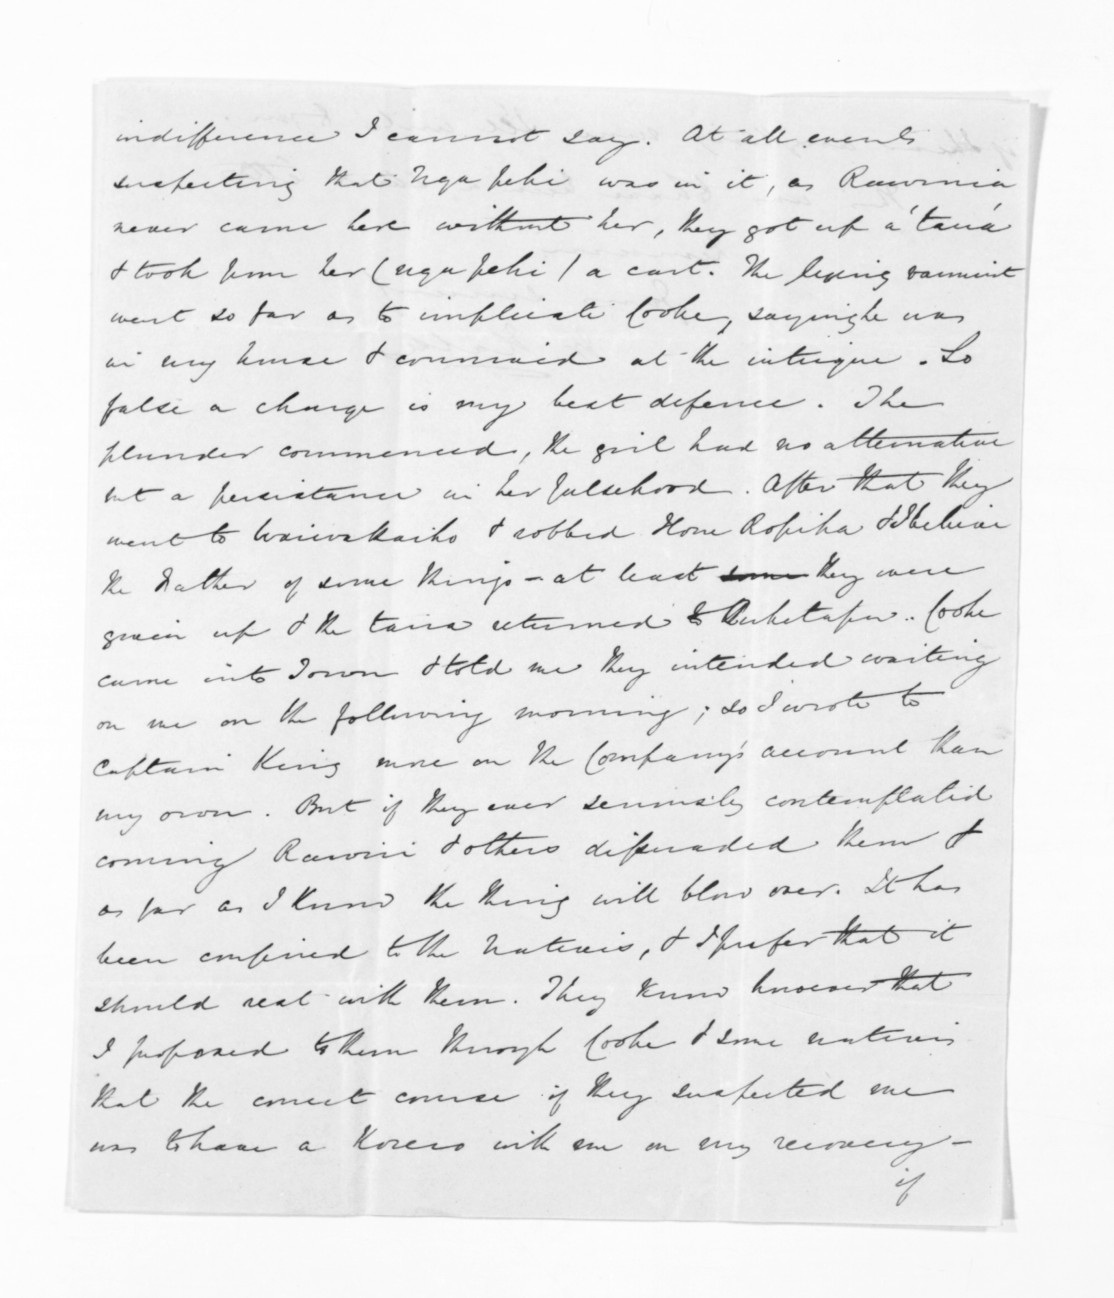 indifference I cannot say. At all events
suspecting that Ngapehi was in it, as Rawinia
never came here without her, they got up a 'taua'
& took from her (Ngapehi) a cart. The lying varmint
went so far as to implicate Cooke, saying he was
in my house & connived at the intrigue. So
false a charge is my best defence. The
plunder commenced, the girl had no alternative
but a persistance in her falsehood. After that they
went to Waiwakaiho & robbed Hone Ropiha & I believe
the Father of some things - at least some they were
given up & the taua returned to Puketapu. Cooke
came into Town & told me they intended waiting
on me on the following morning; so I wrote to
Captain King more on the Company's account than
my own. But if they ever seriously contemplated
coming Rawiri & others dissuaded them &
as far as I know the thing will blow over. It has
been confined to the Natives, & I prefer that it
should rest with them. They know however that
I proposed to them through Cooke & some natives
that the correct course if they suspected me
was to have a Korero with me on my recovery -
if